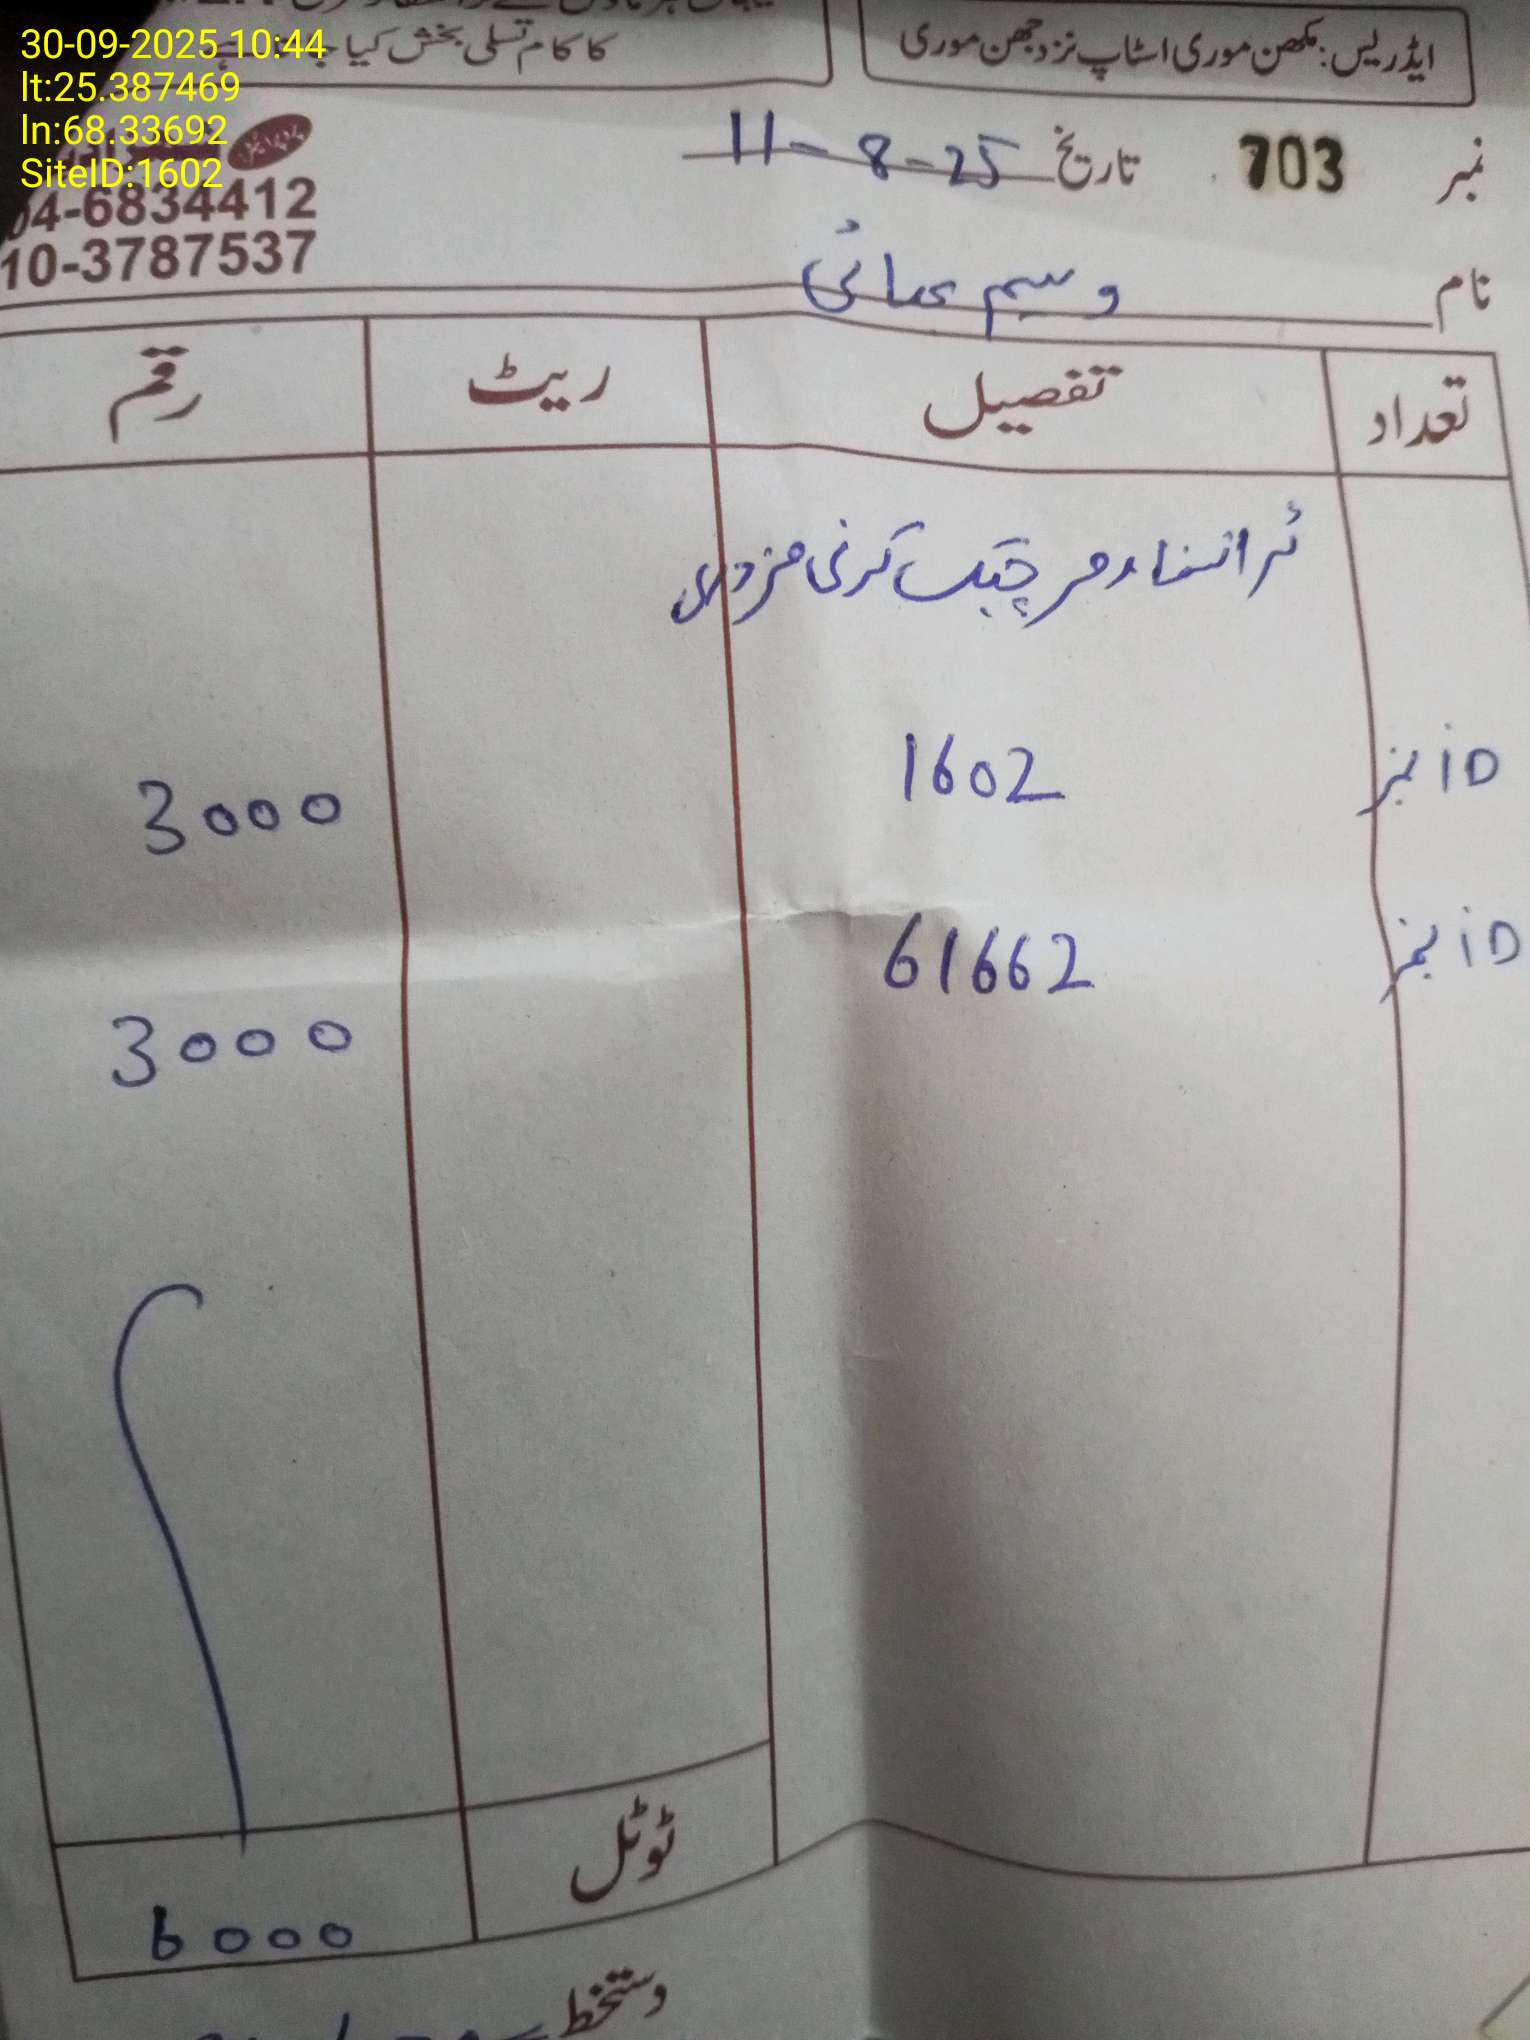 30-09-2025 10:44
lt:25.387469
ln:68.33692
SiteID:1602
ایڈریس: مکھن موری اسٹاپ نزد جھن موری
کا کام تسلی بخش کیا
موبائل
04-6834412
10-3787537
نمبر 703 تاریخ 11-8-25
نام وسیم بھائی
تعداد تفصیل ریٹ رقم
ٹرانسفارمر چیک کرنی مزدوری
iD نمبر 1602 3000
iD نمبر 61662 3000
ٹوٹل 6000
دستخط